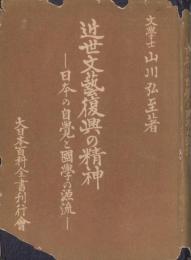 文學士 山川弘至著
近世文藝復興の精神
―日本の自覺と國學の源流―
大日本百科全書刊行會